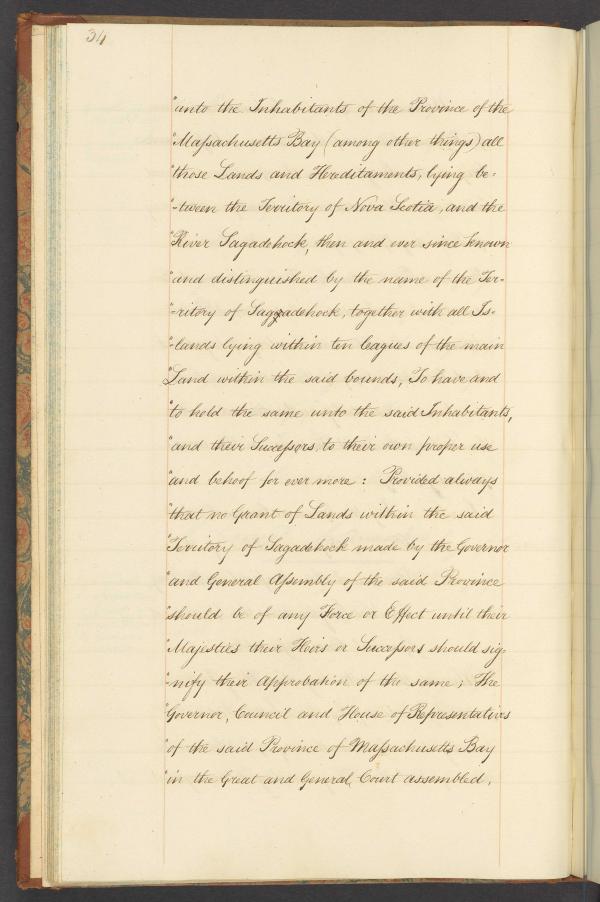 34
"unto the Inhabitants of the Province of the
"Maſsachusetts Bay (among other things) all
"those Lands and Hereditaments, lying be-
"-tween the Territory of Nova Scotia, and the
"River Sagadehock, then and ever since known
"and distinguished by the name of the Ter-
"-ritory of Sagadehock, together with all Is-
"-lands lying within ten leagues of the main
"Land within the said bounds, To have and
"to hold the same unto the said Inhabitants,
"and their Succeſsors, to their own proper use
"and behoof for ever more : Provided always
"that no Grant of Lands within the said
"Territory of Sagadehock made by the Governor
"and General Aſsembly of the said Province
"should be of any Force or Effect until their
"Majesties their Heirs or Succeſsors should sig-
"-nify their Approbation of the same ; The
"Governor, Council and House of Representatives
"of the said Province of Maſsachusetts Bay
"in the Great and General Court assembled,